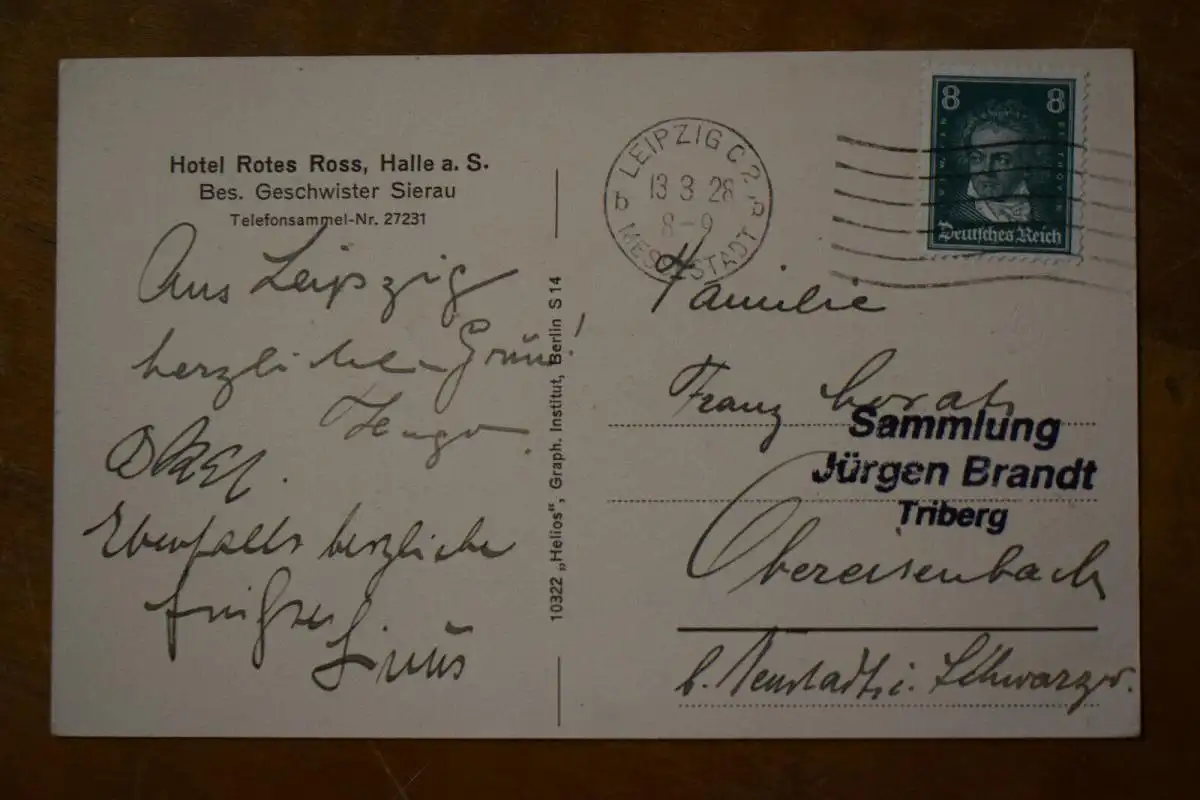 Hotel Rotes Ross, Halle a. S.
Bes. Geschwister Sierau
Telefonsammel-Nr. 27231
Aus Leipzig
herzlichen Grüsse!
Hugo
Ebenfalls herzliche
10322 „Helios“, Graph. Institut, Berlin S 14
LEIPZIG C 2
13 3 28
8-9
MESSESTADT
8 8
Deutsches Reich
Familie
Franz
Sammlung
Jürgen Brandt
Triberg
Obereisenbach
b. Neustadt i. Schwarzw.